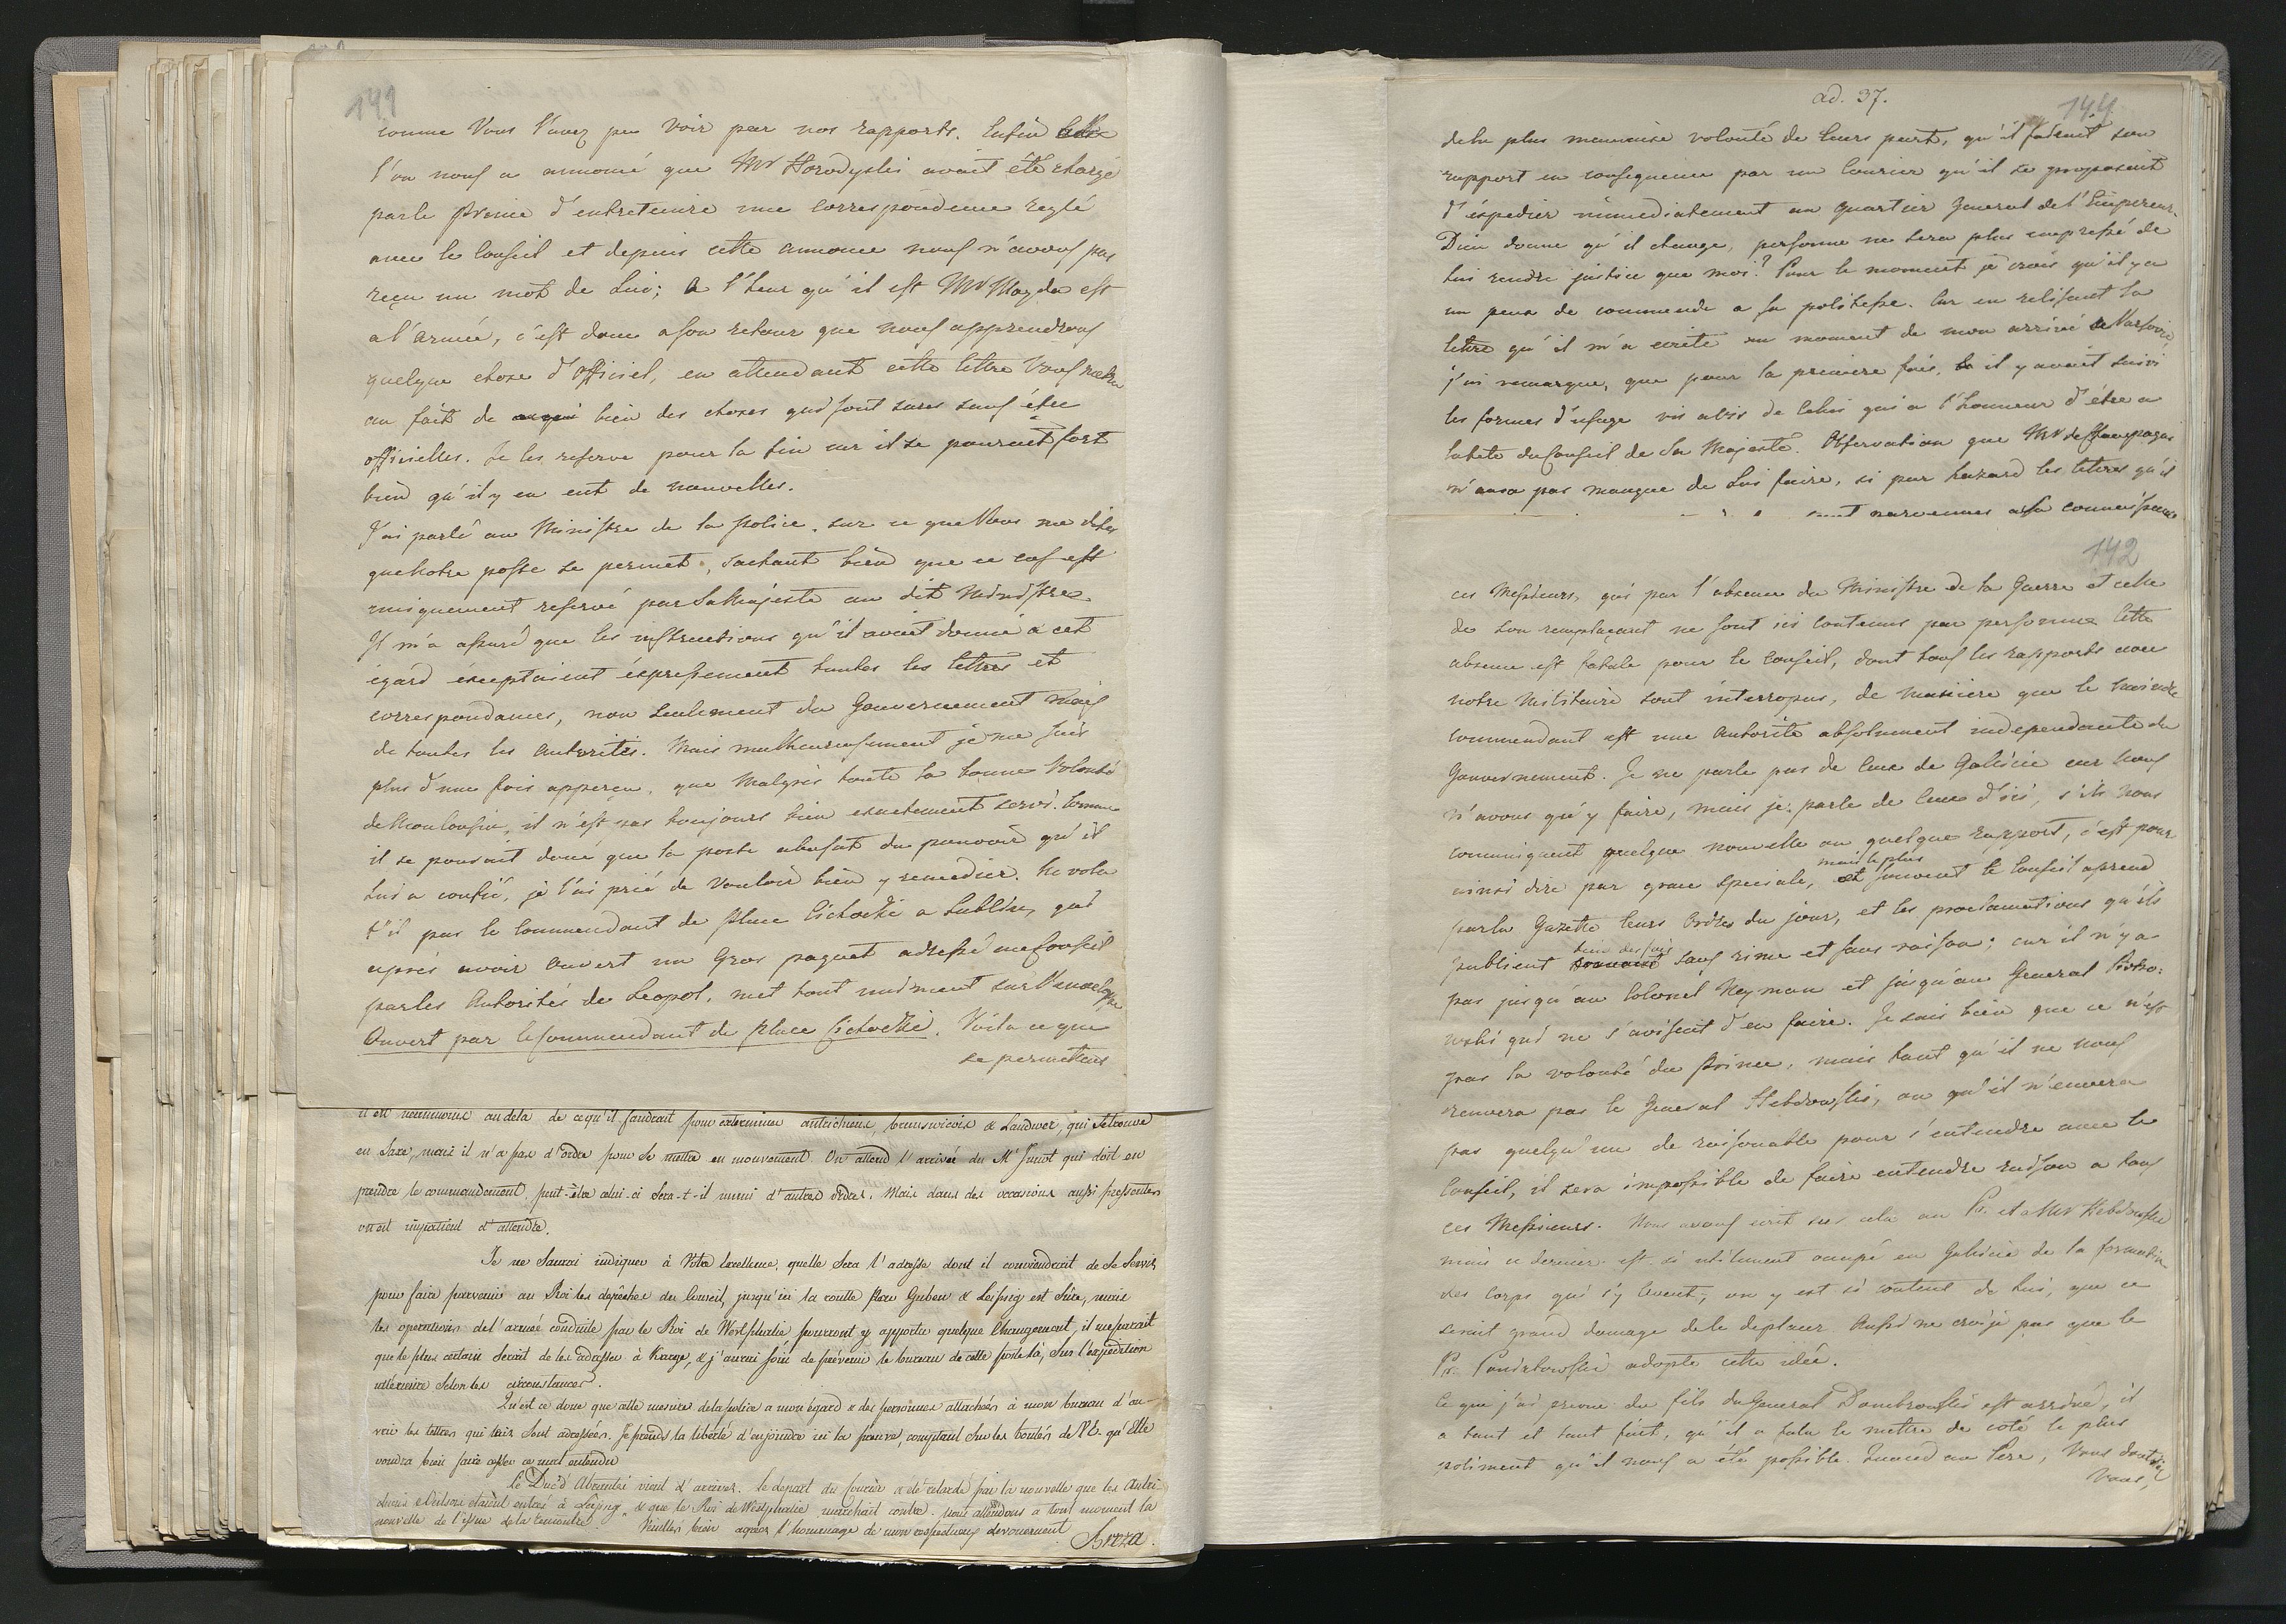 141
comme Vous l'avez pu voir par nos rapports. Enfin
l'on nous a annoncé que Mr Horodyski avait été chargé
par le Prince d'entretenire une correspondence reglé
avec le Conseil et depuis cette annonce nous n'avons pas
reçu un mot de Lui; A l'heur qu'il est Mr Mayda est
a l'armée, c'est donc a son retour que nous apprendrons
quelque chose d'officiel, en attendant cette lettre Vous mettra
au fait de bien des choses qui sont sures sans être
officielles. Je les reserve pour la fin car il se pourrait fort
bien qu'il y en eut de nouvelles.
J'ai parlé au Ministre de la Police, sur ce que Vous me dites
que Notre poste se permet, sachant bien que ce cas est
uniquement reservé par Sa Majesté au dit Ministre
Il m'a assuré que les instructions qu'il avait donné à cet
égard exceptaient éxpressement toutes les lettres et
correspondances, non seulement du Gouvernement Mais
de toutes les Autorités. Mais malheureusement je me suis
plus d'une fois apperçu, que Malgrés toute la bonne Volonté
de Mon Cousin, il n'est pas toujours bien exactement servi. Comme
il se pouvait donc que la poste abusat du pouvoir qu'il
lui a confié, je l'ai prié de vouloir bien y remedier. Ne vola
t'il pas le Commendant de Place Cichocki a Lublin, qui
après avoir ouvert un Gros paquet adressé au Conseil
par les Autorités de Leopol, met tout uniment sur l'enveloppe
Ouvert par le Commendant de Place Cichocki. Voila ce que
se permettent
au dela de ce qu'il faudrait pour exterminer autrichiens, brunswicois & Landwer, qui se trouve
en Saxe, mais il n'a pas d'ordre pour se mettre en mouvement. On attend l'arrivée du Ml Junot qui doit en
prendre le commandement, peut-être celui-ci sera-t-il muni d'autres ordres. Mais dans des occasions aussi pressantes
on est impatient d'attendre.
Je ne saurai indiquer à Votre Excellence, quelle sera l'adresse dont il conviendrait de se servir
pour faire parvenir au Roi les depêches du Conseil, jusqu'ici la routte par Guben & Leipsig est sûre, mais
les operations de l'armée conduite par le Roi de Westphalie pourront y apporter quelque changement, il me parait
que le plus certain serait de les adresser à Karge, & j'aurai soin de prévenir le bureau de cette poste là, sur l'expédition
ultérieure selon les circonstances.
Qu'est ce donc que cette mesure de la police a mon égard & des personnes attachées à mon bureau d'ou-
vrir les lettres qui leurs sont adressées. Je prends la liberté d'enjoindre ici la preuve, comptant sur les bontés de V.E. qu'Elle
voudra bien faire cesser ce mal entendu
Le Duc d'Abrantés vient d'arriver. Le départ du courier a été retardé par la nouvelle que les Autri
chiens étaient entrés à Leipsig & que le Roi de Westphalie marchait contre. Nous attendons a tout moment la
nouvelle de l'issue de la rencontre. Veuilles bien agréer l'hommage de mon respectueux devouement
Breza.
ad. 37.
144
dela plus mauvaise volonté de leurs part, qu'il faisait son
rapport en consequence par un Courier qu'il se proposait
d'éxpedier immediatement au Quartier General de l'Empereur.
Dieu donne qu'il change, personne ne sera plus empressé de
lui rendre justice que moi? Pour le moment je crois qu'il y a
un peux de commende a sa politesse. Car en relisant la
lettre qu'il m'a ecrite au moment de mon arrivé a Varsovie
j'ai remarque, que pour la premiere fois, il y avait suivi
les formes d'usage vis a vis de Celui qui a l'honneur d'étre a
la tete du Conseil de Sa Majesté. Observation que Mr de Champagni
n'aura pas manque de Lui faire, si par hazard les lettres qu'il
sont parvenues a sa connaissance
142
ces Messieurs, qui par l'absence du Ministre de la Guerre et celle
de son remplaçant ne sont ici contenus par personne Cette
absence est fatale pour le Conseil, dont tous les rapports avec
notre Militaire sont interropus, de maniere que le moindre
commendant est une Autorité absolument independante du
Gouvernement. Je ne parle pas de Ceux de Galicie car nous
n'avons qu'y faire, mais je parle de Ceux d'ici, s'ils nous
comuniquent quelque nouvelle ou quelque rapport, c'est pour
mais le plus
ainsi dire par grace speciale, souvent le Conseil aprend
par la Gazette leurs Ordres du jour, et les proclamations qu'ils
publient sans rime et sans raison; car il n'y a
pas jusqu'au Colonel Neyman et jusqu'au General Piotro:
wski qui ne s'avisent d'en faire. Je sais bien que ce n'est
pas la volonté du Prince, mais tant qu'il ne nous
renvera pas le General Hebdowski, ou qu'il n'envera
pas quelqu'un de raisonable pour s'entendre avec le
Conseil, il sera impossible de faire entendre raison a tous
ces Messieurs. Nous avons ecrit sur cela au Pr. et a Mr Hebdowski
mais ce dernier est si utilement occupé en Galicie de la formation
des Corps qui s'y levent, on y est si content de lui, que ce
serait grand domage de le deplacer Aussi ne crois je pas que le
Pr. Poniatowski adopte cette idée.
Ce que j'ai prevu du fils du General Dombrowski est arrivé, il
a tant et tant fait, qu'il a falu le mettre de coté le plus
poliment qu'il nous a été possible. Quand au Pere, Vous doutez
Vous,